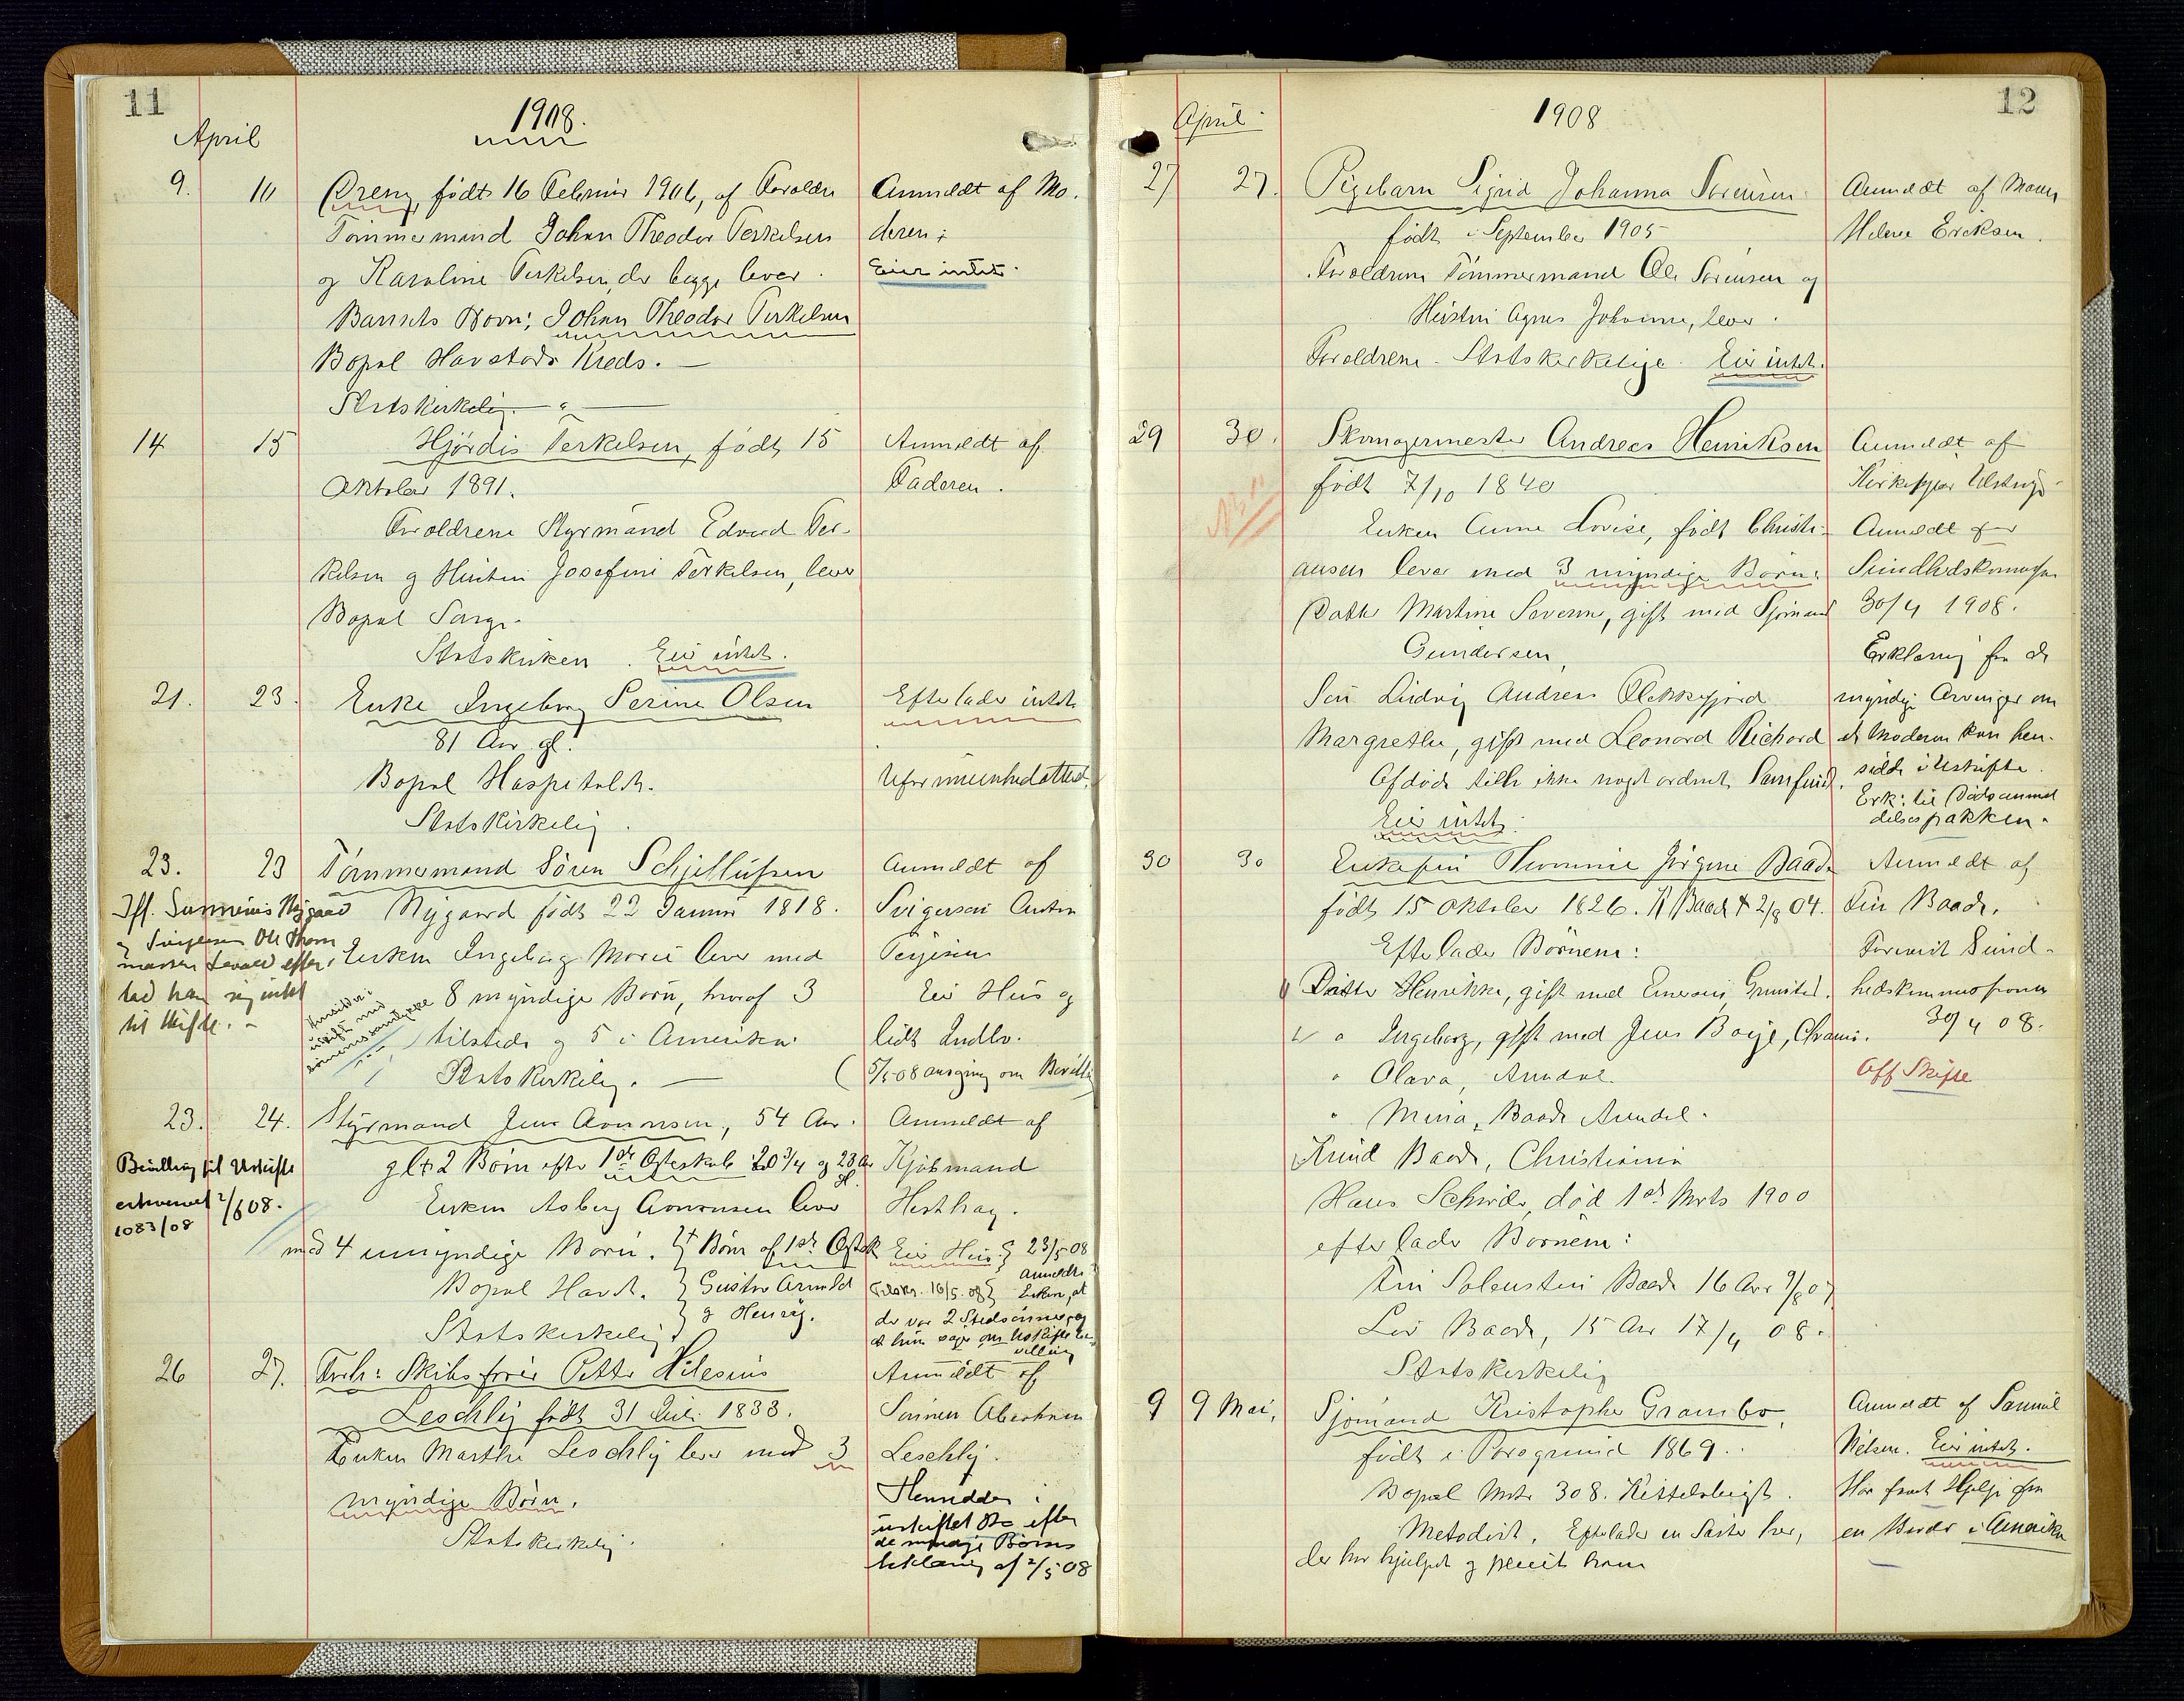 11
1908.
April
9. 10 Dreng, født 16 Februar 1906, af Forældre
Tømmermand Johan Theodor Terkelsen
og Karoline Terkelsen, der begge lever.
Barnets Navn: Johan Theodor Terkelsen
Bopæl Havstads Kreds. —
Statskirkelig. — " —
Anmeldt af Mo-
deren;
Eier intet.
14 15 Hjørdis Terkelsen, født 15
Oktober 1891.
Forældrene Styrmand Edvard Ter-
kelsen og Hustru Josefine Terkelsen, lever
Bopæl
Statskirken. Eier intet.
Anmeldt af
Faderen.
21. 23. Enke Ingeborg Serine Olsen
81 Aar gl.
Bopæl Hospitalet.
Statskirkelig.
Efterlader intet
Uformuenhedattest.
23. 23 Tømmermand Søren Schjellufsen
Nygaard født 22 Januar 1818.
Enken Ingeborg Marie lever med
8 myndige Børn, hvoraf 3
tilstede og 5 i Amerika.
Statskirkelig. —
Iff. Nygaard
og Svigersøn Ole Thom
efter-
lod han sig intet
til Skifte. -
Hensidder i
uskift med
sønnens samtykke
Anmeldt af
Svigersøn Anton
Terjesen
Eier Hus og
lidt Indbo.
(5/5-08 ansøgning om Bevilling
23. 24. Styrmand Jens Aanonsen, 54 Aar
gl + 2 Børn efter 1ste Ægteskab 20 3/4 og 23 Aar gl.
Enken Asberg Aanonsen lever
med 4 umyndige Børn. 2+ Børn af 1ste Ægtsk
Bopæl Havst. } Gustav Arnold
Statskirkelig } og Henry.
Bevilling til Uskifte
erhvervet 2/6 08.
1083/08
Anmeldt af
Kjøbmand
Hesthag.
Eier Hus } 23/5 08
16/5. 08} anmeldte
Enken, at
der var 2 Stedsønner, og
at hun søger om Uskifte be-
villing
26 27. Forh: Skibsfører Petter Hilesius
Leschly født 31 Juli 1833.
Enken Marthe Leschly lever med 3
myndige Børn.
Statskirkelig.
Anmeldt af
Sønnen Abraham
Leschly.
Hensidder i
uskiftet Bo efter
de myndige Børns
Erklæring af 2/5 08
12
1908
April
27 27. Pigebarn Sigrid Johanna Sørensen
født i September 1905
Forældrene Tømmermand Ole Sørensen og
Hustru Agnes Johanne, lever.
Forældrene Statskirkelige. Eier intet.
Anmeldt af
Helene Eriksen.
29 30. Skomagermester Andreas Henriksen
født 7/10 1840
Enken Anne Lovise, født Christi-
ansen lever med 3 myndige Børn:
Datter Martine Severine, gift med Sjømand
Gundersen,
Søn Ludvig Andreas Flekkefjord
Margrethe, gift med Leonard Richard
Afdøde tilh. ikke noget ordnet Samfund.
Eier intet.
Anmeldt af
Kirkespær Ulstrup
Anmeldt for
Sundhedskommissionen
30/4 1908.
Erklæring fra de
myndige Arvinger om
at Moderen kan hen-
sidde i Uskifte.
Erk: til Dødsanmel
delsespakken.
30 30 Enkefru Thommine Jørgine Baade
født 15 Oktober 1826. K Baade + 2/8 04.
Efterlader Børnene:
Datter Henrikke, gift med Grimstad.
" Ingeborg, gift med Jens Boye, Chrania.
" Olava, Arendal.
" Mina, Baade Arendal.
Knud Baade, Christiania
Hans Schrøder, død 1ste Marts 1900
efterlader Børnene:
Baade 16 Aar 9/8 07
Leif Baade, 15 Aar 17/4 08.
Statskirkelig
Anmeldt af
Fin Baade.
Forevist Sund-
hedskommissionen
30/4 08.
Off Skifte
9 9 Mai, Sjømand Kristopher Grambo,
født i Porsgrund 1869.
Bopæl Matr 308. Kittelsbugt.
Metodist. Efterlader en Søster her,
der har hjulpet og pleiet ham
Anmeldt af Samuel
Nilsen. Eier intet.
Har faaet Hjelp fra
en Broder i Amerika